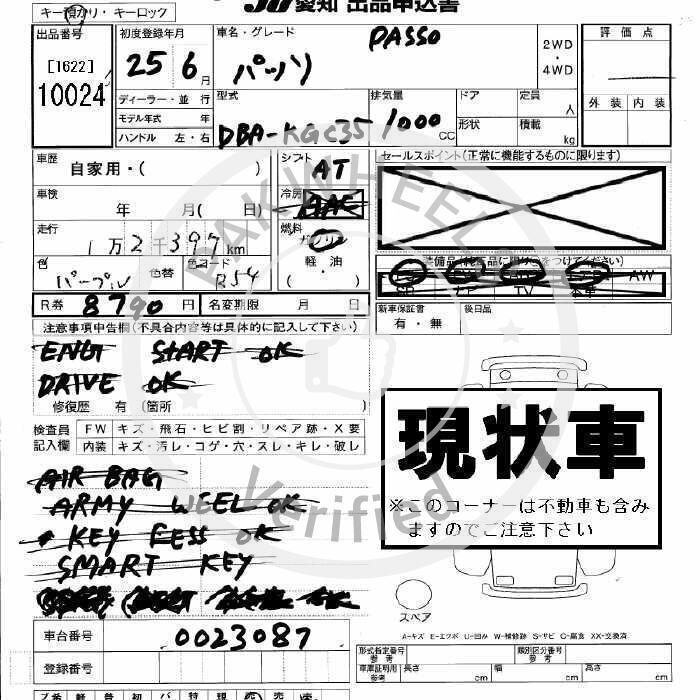 愛知 出品申込書
キー預かり・キーロック
出品番号
[1622]
10024
初度登録年月
25 6月
車名・グレード
PASSO
パッソ
2WD
・
4WD
評価点
外装 内装
ディーラー・並行
モデル年式 年
ハンドル 左・右
型式
DBA-KGC35
排気量
1000
CC
ドア
定員
人
形状
積載
kg
車歴
自家用・( )
シフト
AT
セールスポイント(正常に機能するものに限ります)
車検
年 月( 日)
冷房
AAC
走行
1万2千397km
燃料
ガソリン
軽・油
( ・ )
色
パープル
色替
色コード
R54
TV
AW
R券 8790円
名変期限 月 日
新車保証書
有・無
後日品
注意事項申告欄(不具合内容等は具体的に記入して下さい)
ENGT START OK
DRIVE OK
修復歴 有(箇所 )
検査員
記入欄
FW キズ・飛石・ヒビ割・リペア跡・X要
内装 キズ・汚レ・コゲ・穴・スレ・キレ・破レ
AIR BAG
ARMY WEEL OK
KEY FESS OK
SMART KEY
現状車
※このコーナーは不動車も含み
ますのでご注意下さい
スペア
A-キズ E-エクボ U-凹み W-補修跡 S-サビ C-腐食 XX-交換済
車台番号 0023087
登録番号
形式指定番号
参考
類別区分番号
参考
車庫証明用
参考
長さ cm
幅 cm
高さ cm
PAKWHEELS
Verified